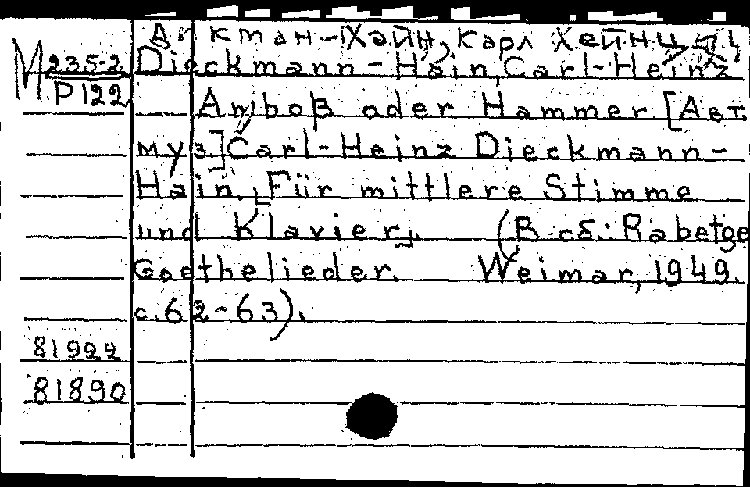 Дикман-Хайн, Карл Хейнц
М 235-2
Р 122
Dieckmann-Hain, Carl-Heinz
Amboß oder Hammer. [Авт.
муз.] Carl-Heinz Dieckmann-
Hain. [Für mittlere Stimme
und Klavier].   (В сб.: Rabetge
Goethelieder.   Weimar, 1949.
с. 62-63).
81922
81890